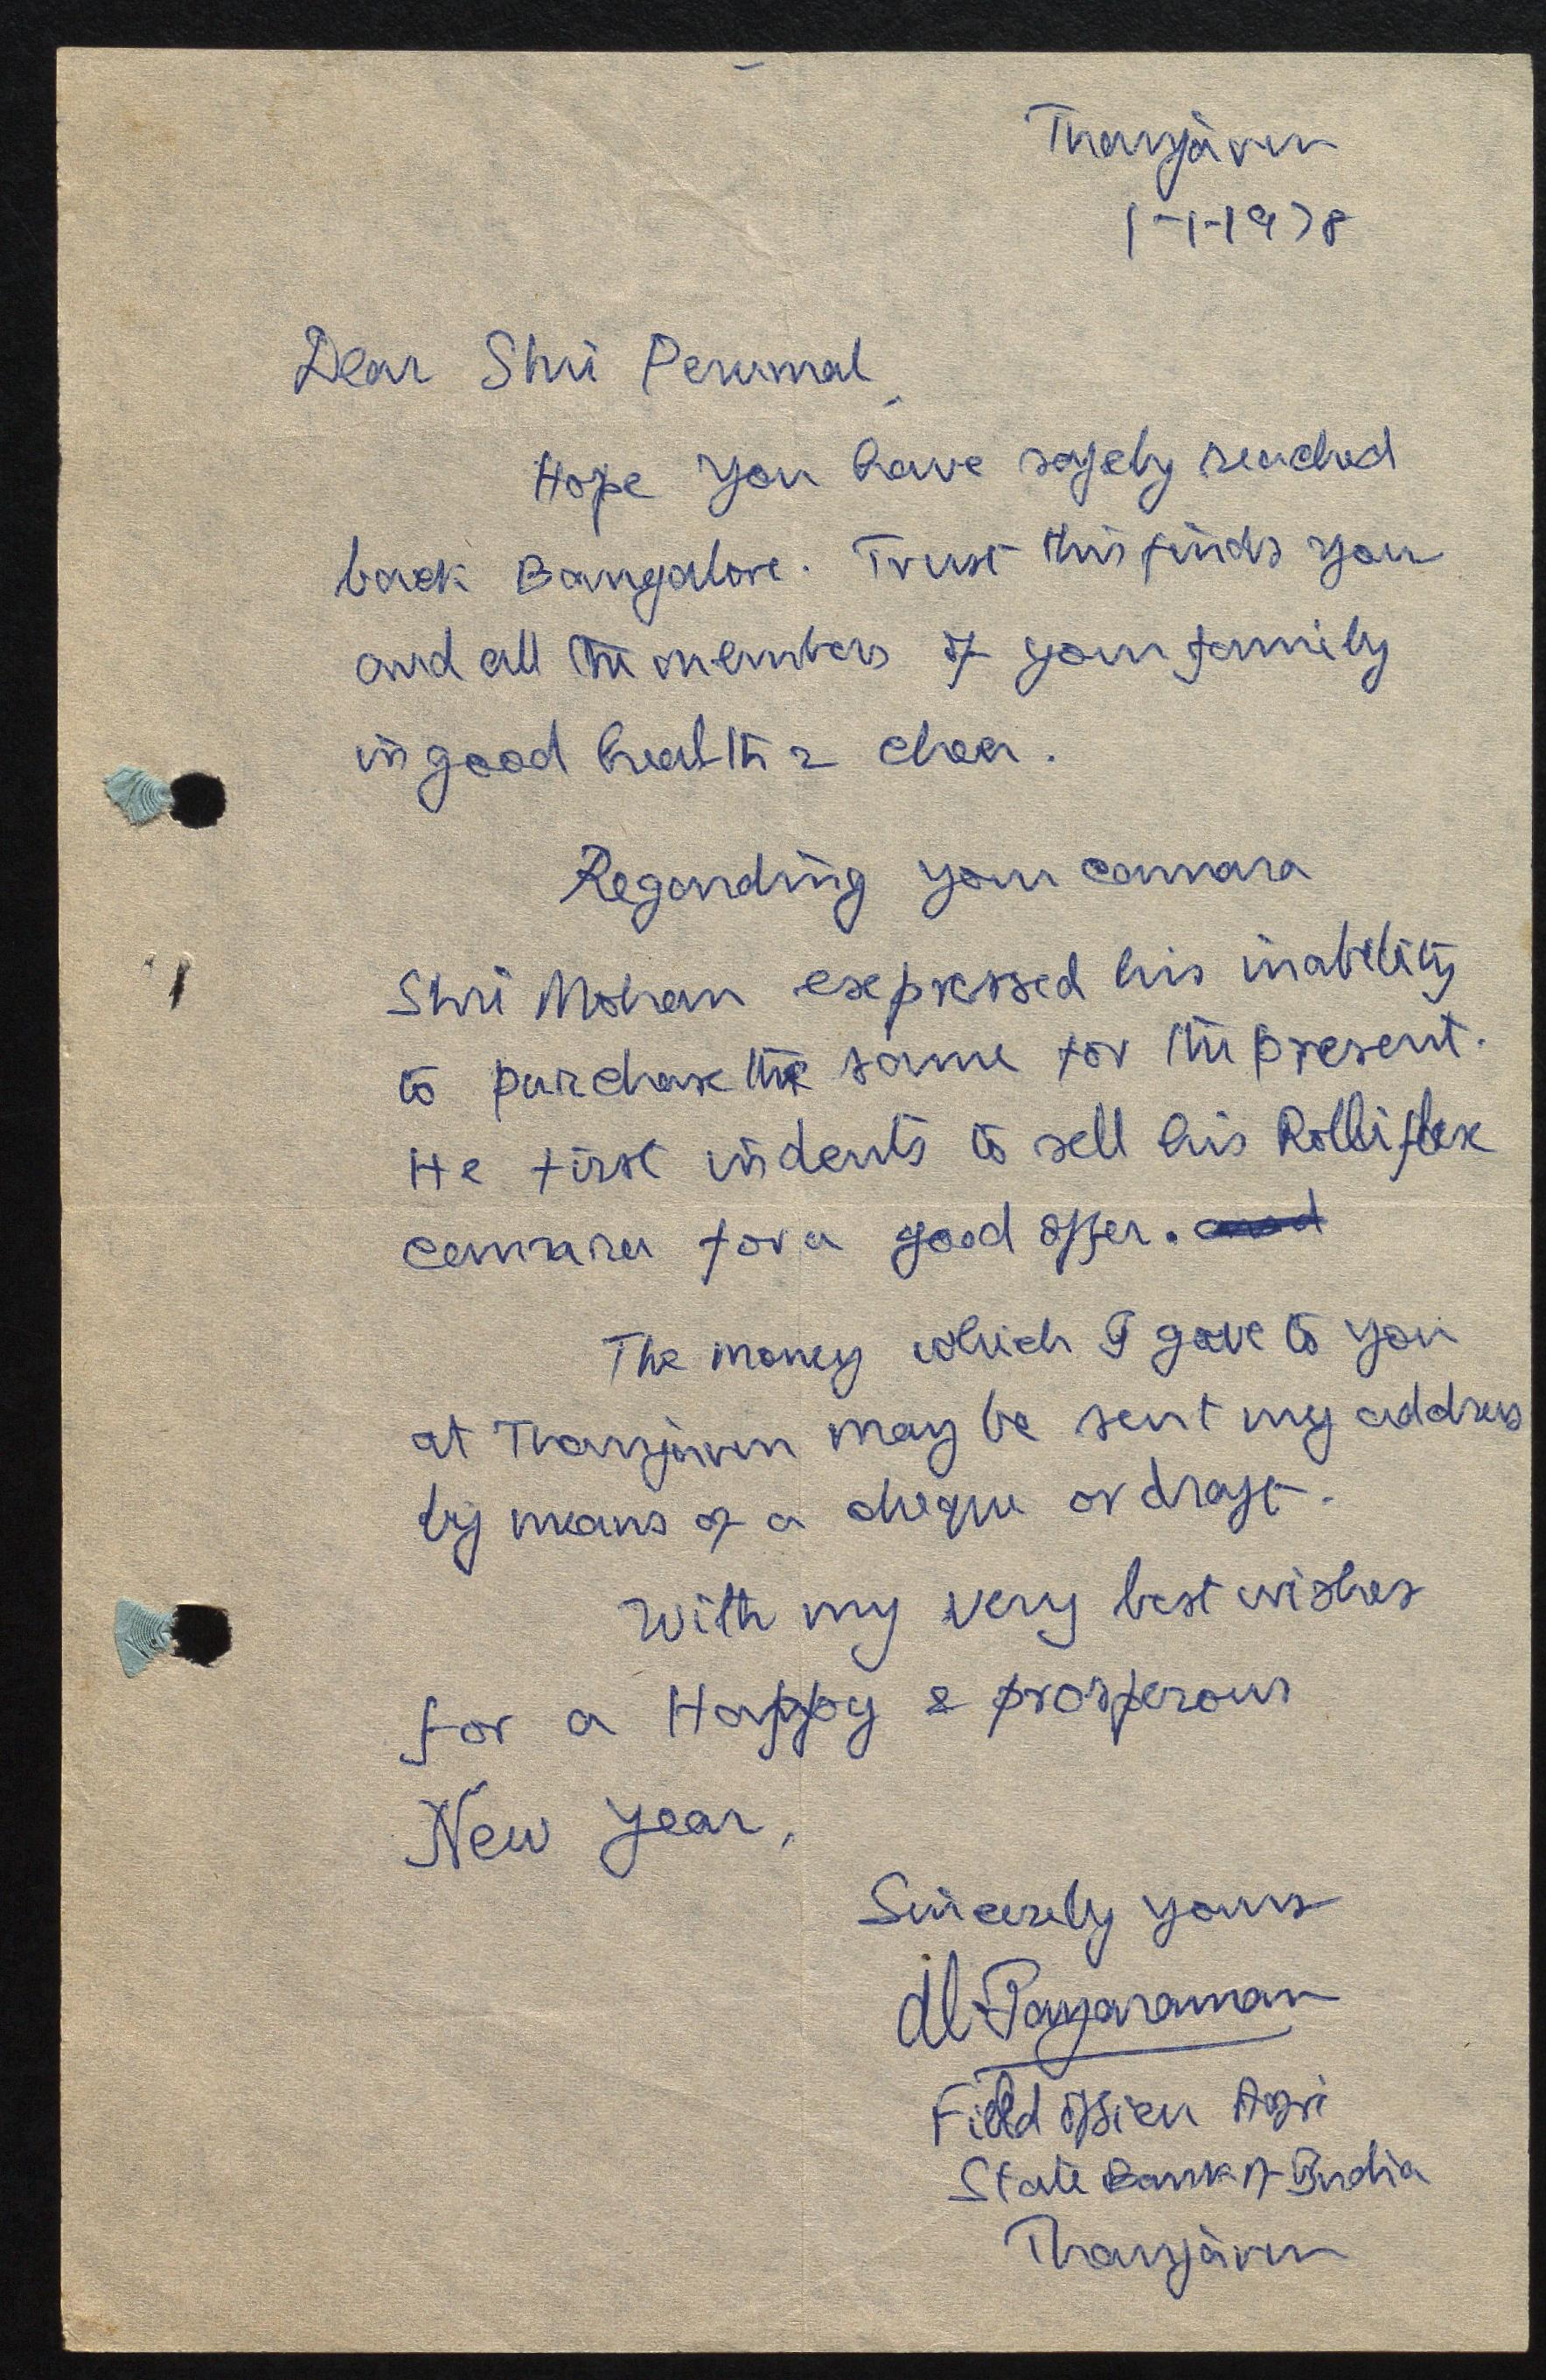 Thanjavur
1-1-1978
Dear Shri Perumal,
Hope you have safely reached
back Bangalore. Trust this finds you
and all the members of your family
in good health & cheer.
Regarding your camara
Shri Mohan expressed his inability
to purchase the same for the present.
He first indents to sell his Rolliflex
camara for a good offer. and
The money which I gave to you
at Thanjavur may be sent my address
by means of a cheque or draft.
With my very best wishes
for a Happy & prosperous
New Year,
Sincerely yours
Jayaraman
Field officer Agri
State Bank of India
Thanjavur